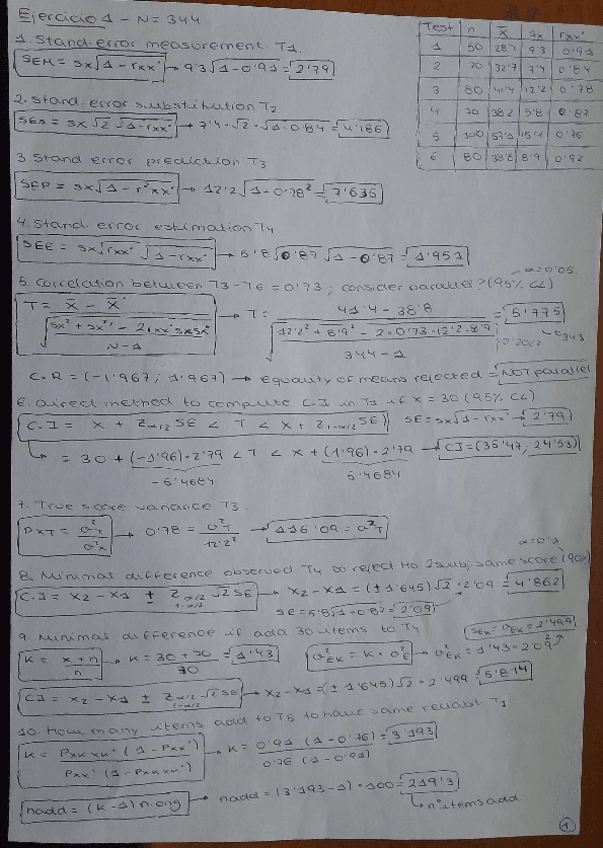 Ejercicio 1 - N = 344
Test n X̄ Sx rxx'
1 50 28'7 9'3 0'91
2 70 32'7 7'4 0'84
3 80 41'4 12'2 0'78
4 70 38'2 5'8 0'87
5 100 15'4 0'76
6 80 38'8 8'9 0'92
1. Stand. error measurement. T1.
SEM = Sx√1 - rxx' → 9'3√1-0'91 = 2'79
2. Stand. error substitution T2
SES = Sx√2 √1 - rxx' → 7'4·√2·√1-0'84 = 4'186
3. Stand error prediction T3
SEP = Sx√1 - r²xx' → 12'2√1-0'78² = 7'635
4. Stand. error estimation T4
SEE = Sx√rxx' √1-rxx' → 5'8√0'87 √1-0'87 = 1'951
5. Correlation between T3-T6 = 0'73; consider parallel? (95% CL) α=0'05
T = X̄ - X̄' / √(Sx² + Sx'² - 2rxx' SxSx' / N-1) → T = 41'4 - 38'8 / √(12'2² + 8'9² - 2·0'73·12'2·8'9 / 344-1) = 5'775
C.R = (-1'967; 1'967) → equality of means rejected = NOT parallel
6. Direct method to compute C.I in T1 if x = 30 (95% CL)
C.I = X + Zα/2 SE < T < X + Z1-α/2 SE SE = Sx√1-rxx' → 2'79
= 30 + (-1'96)·2'79 < T < X + (1'96)·2'79 → CI = (35'47; 24'53)
-5'4684 5'4684
7. True score variance T3.
PXT = σ²T / σ²x → 0'78 = σ²T / 12'2² → 116'09 = σ²T
8. Minimal difference observed T4 to reject H0 2 subj. same score (90%) α=0'1
C.I = X2 - X1 ± Zα/2 1-α/2 √2 SE → X2 - X1 = (±1'645)√2·2'09 = 4'862
SE = 5'8√1-0'87 = 2'09
9. Minimal difference if add 30 items to T4 SEK = √σ²EK = 2'499
K = x+n / n → K = 30+70 / 70 = 1'43 σ²EK = K·σ²E → σ²EK = 1'43·2'09²
CI = X2 - X1 ± Zα/2 1-α/2 √2 SE → X2-X1 = (±1'645)√2·2'499 = 5'814
10. How many items add to T5 to have same reliabl. T1
K = Pxkxk' (1 - Pxx') / Pxx' (1 - Pxkxk') → K = 0'91 (1-0'76) / 0'76 (1-0'91) = 3'193
nadd = (K-1) n.orig → nadd = (3'193-1)·100 = 219'3
nº items add
1